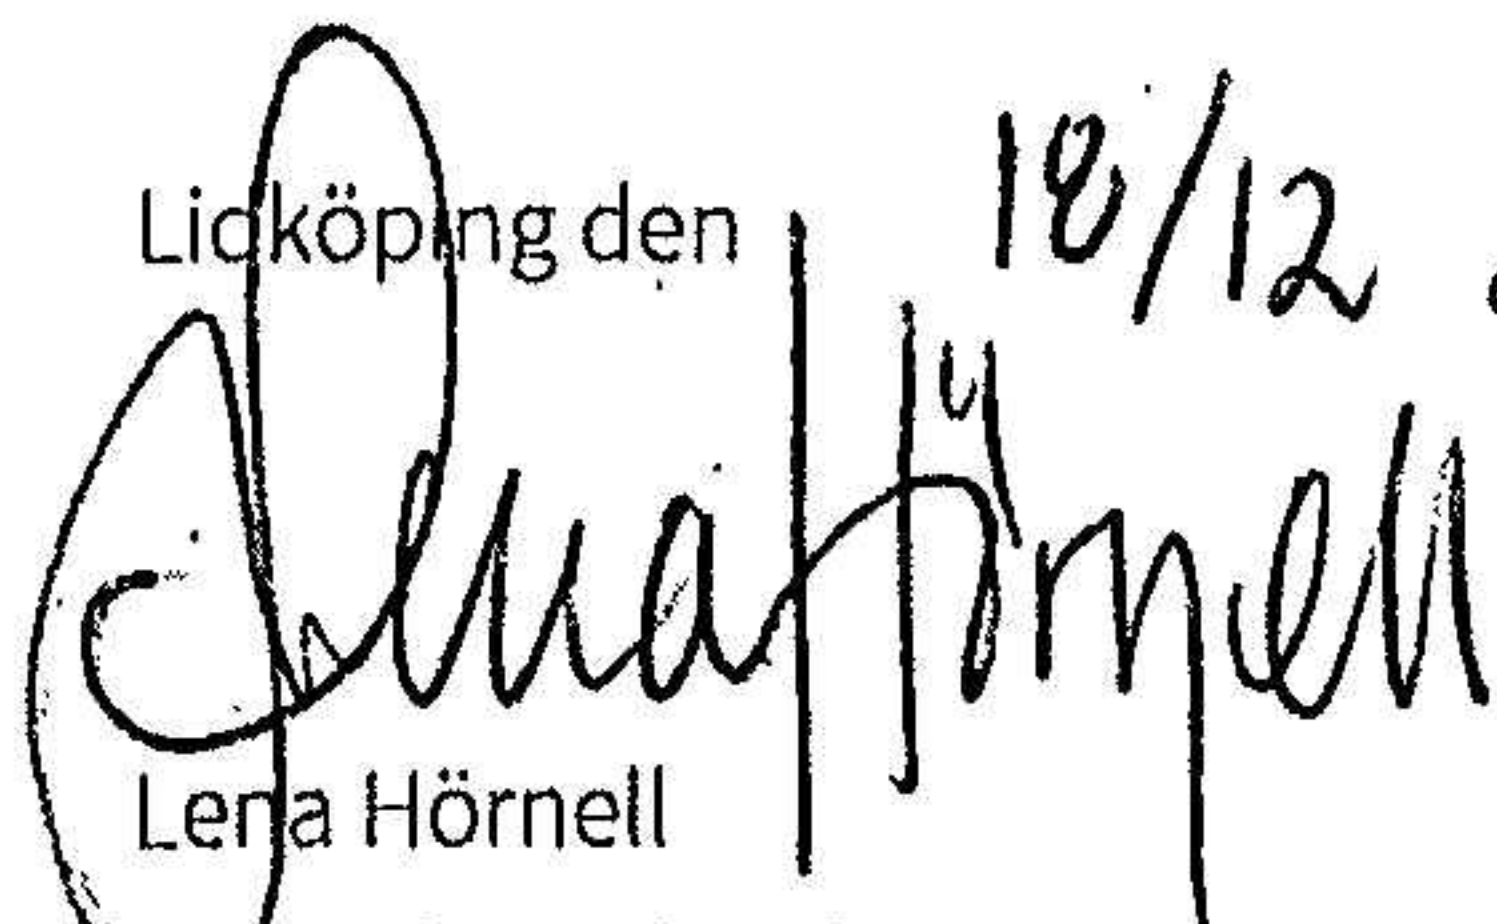 Lidköping den 18/12
Lena Hörnell
Lena Hörnell